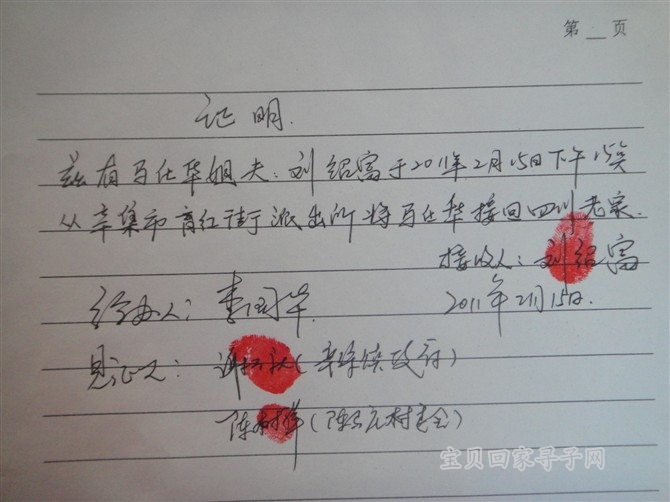 第 页
证明.
兹有马仕华姐夫:刘绍富于2011年2月15日下午15点
从辛集市育红街派出所将马仕华接回四川老家.
接收人:刘绍富
经办人:李国华 2011年2月15日.
见证人:
陈树
宝贝回家寻子网